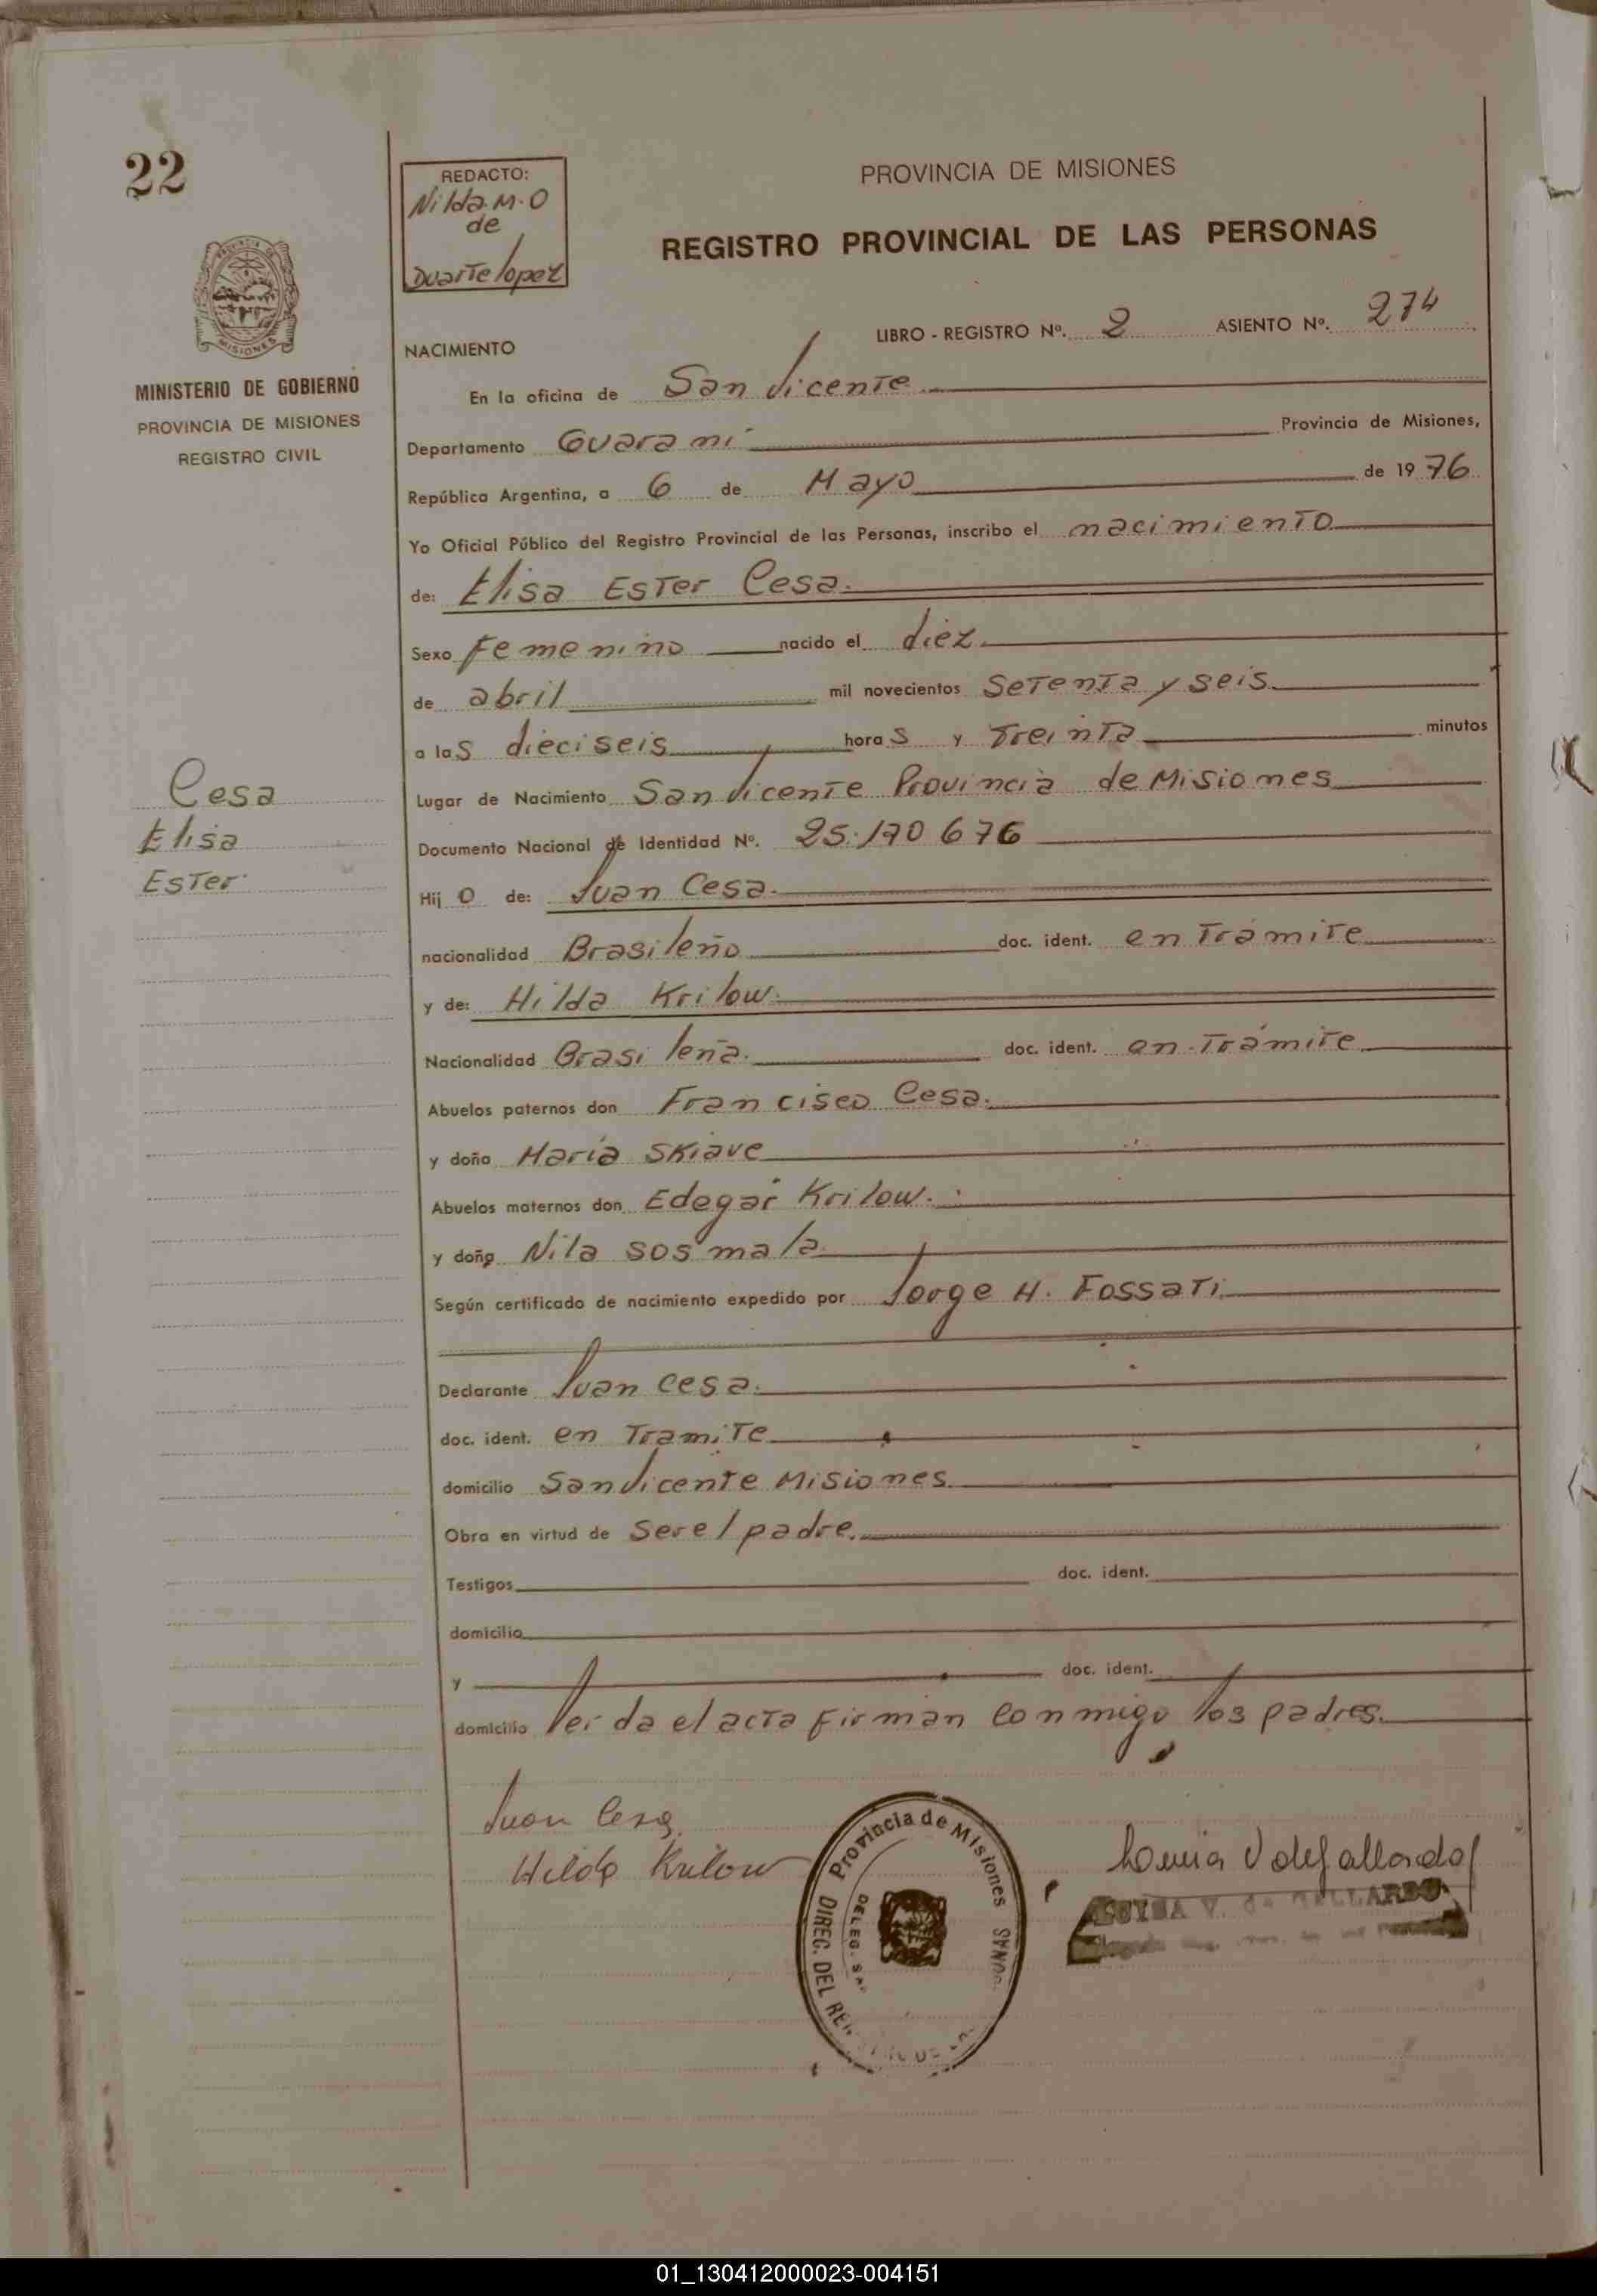 22
REDACTO:
Nilda. M. O
de
Duarte lopez
PROVINCIA DE MISIONES
REGISTRO PROVINCIAL DE LAS PERSONAS
PROVINCIA DE
MISIONES
MINISTERIO DE GOBIERNO
PROVINCIA DE MISIONES
REGISTRO CIVIL
LIBRO - REGISTRO Nº. 2 ASIENTO Nº. 274
NACIMIENTO
En la oficina de San Vicente
Departamento Guarani Provincia de Misiones,
República Argentina, a 6 de Mayo de 1976
Yo Oficial Público del Registro Provincial de las Personas, inscribo el nacimiento
de: Elisa Ester Cesa.
Sexo Femenino nacido el diez
de abril mil novecientos setenta y seis
a las dieciseis horas y treinta minutos
Cesa
Elisa
Ester
Lugar de Nacimiento San Vicente Provincia de Misiones
Documento Nacional de Identidad Nº. 25.170 676
Hijo de: Juan Cesa.
nacionalidad Brasileño doc. ident. en Trámite
y de: Hilda Krilow.
Nacionalidad Brasileña. doc. ident. en Trámite
Abuelos paternos don Francisco Cesa.
y doña María Skiave
Abuelos maternos don Edegar Krilow.
y doña Nila sosmala
Según certificado de nacimiento expedido por Jorge H. Fossati
Declarante Juan Cesa.
doc. ident. en Tramite
domicilio San Vicente Misiones
Obra en virtud de ser el padre.
Testigos doc. ident.
domicilio
y doc. ident.
domicilio Leida el acta firman conmigo los padres.
Juan Cesa
Hilda Krilow
Provincia de Misiones
DIREC. DEL
DELEG.
V de Gallardo
LUISA V. de GALLARDO
01_130412000023-004151